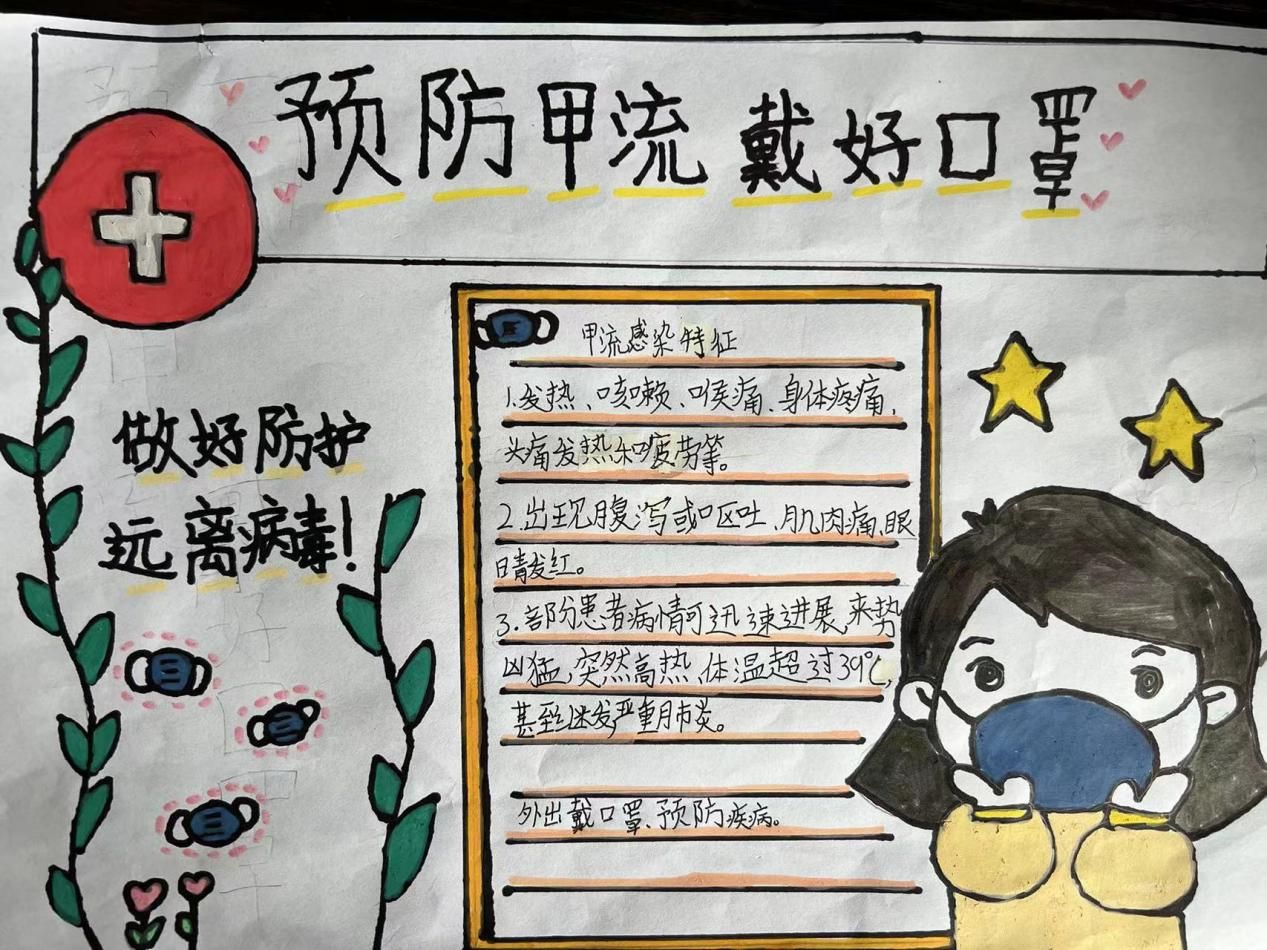 预防甲流 戴好口罩
做好防护
远离病毒！
甲流感染特征
1.发热、咳嗽、喉痛、身体疼痛，
头痛发热和疲劳等。
2.出现腹泻或呕吐、肌肉痛、眼
睛发红。
3.部分患者病情可迅速进展，来势
凶猛，突然高热、体温超过39℃，
甚至继发严重肺炎。
外出戴口罩、预防疾病。